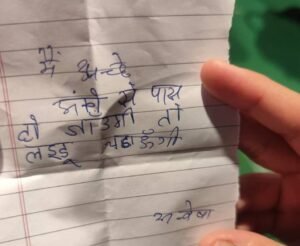 में अच्छे
अंको से पास
हो जाउगी तो
लड्डू चढाऊँगी